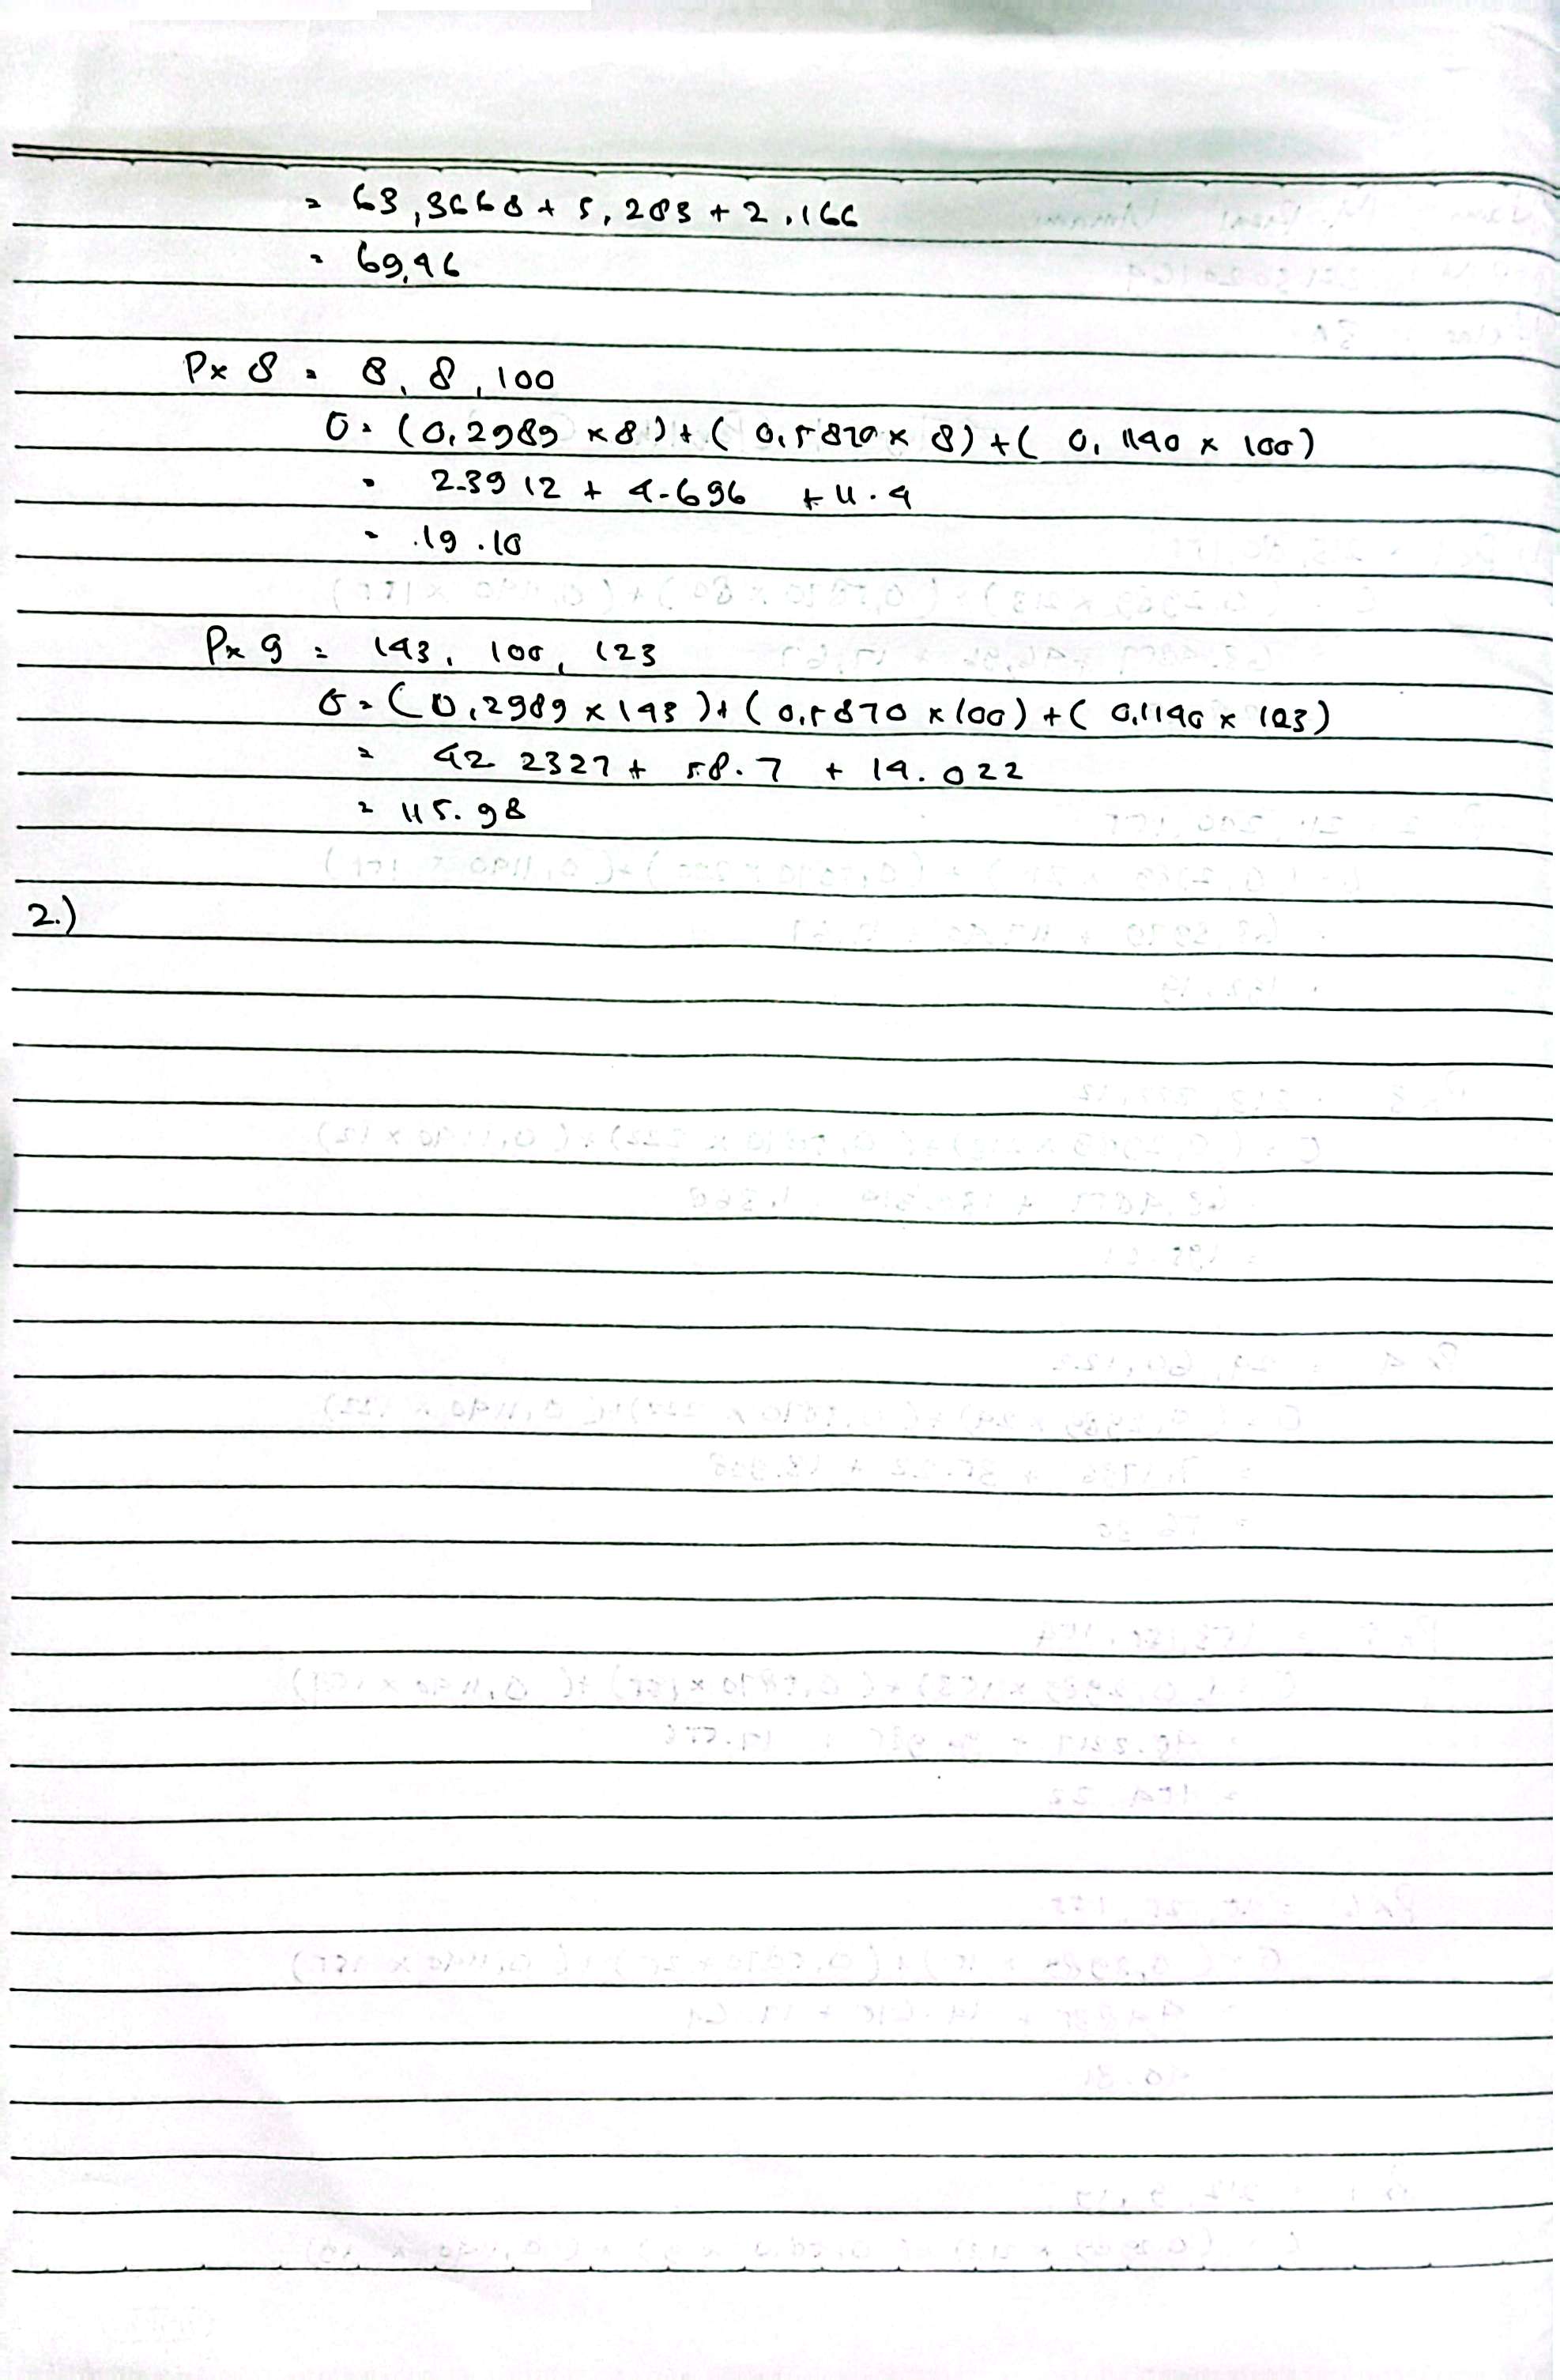 = 63,3668 + 5,283 + 2.166
= 69,46
Px 8 = 8, 8, 100
G = (0,2989 x 8) + (0,5870 x 8) + (0,1140 x 100)
= 2.3912 + 4.696 + 11.4
= 19.10
Px 9 = 143, 100, 123
G = (0,2989 x 143) + (0,5870 x 100) + (0,1140 x 123)
= 42 2327 + 58.7 + 14.022
= 115.98
2.)